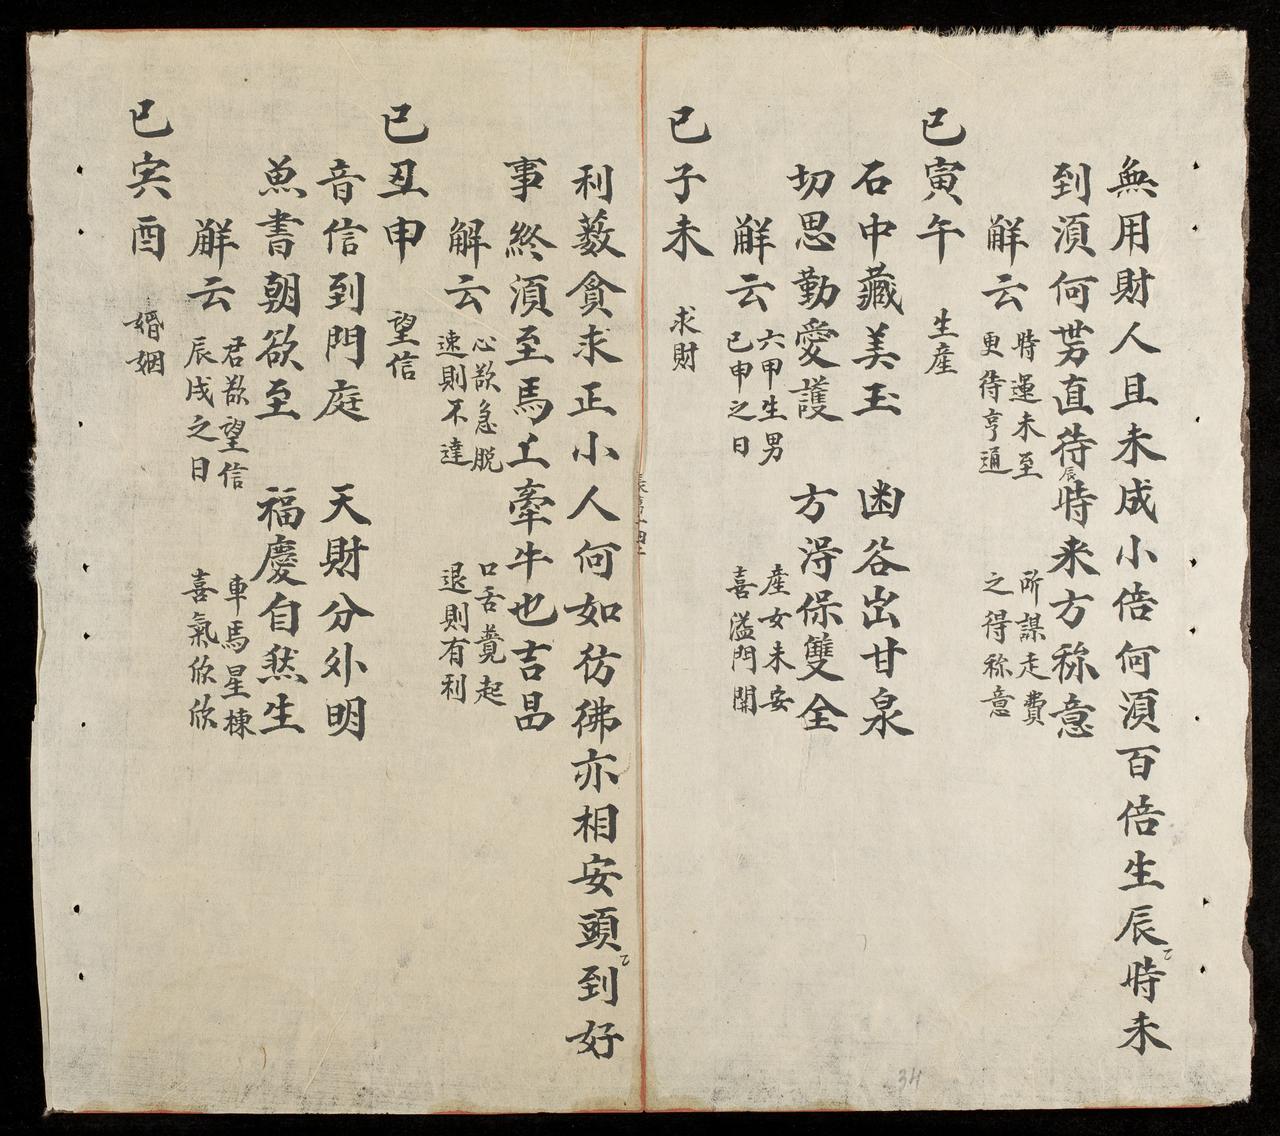 無用財人且未成小倍何湏百倍生辰時未
到湏何勞直待辰時来方称意
觧云 時運未至 所謀走費
更待亨通 之得称意
巳寅午 生産
石中藏美玉 凼谷出甘泉
切思勤愛護 方淂保雙全
觧云 六甲生男 産女未安
巳申之日 喜溢門開
巳子未 求財
利薮貪求正小人何如彷彿亦相安頭到好
事終湏至馬工牽牛也吉昌
解云 心欲急脱 口舌竟起
速則不達 退則有利
巳丑申 望信
音信到門庭 天財分外明
魚書朝欲至 福慶自然生
觧云 君欲望信 車馬星棟
辰戌之日 喜氣欣欣
巳亥酉 婚姻
34